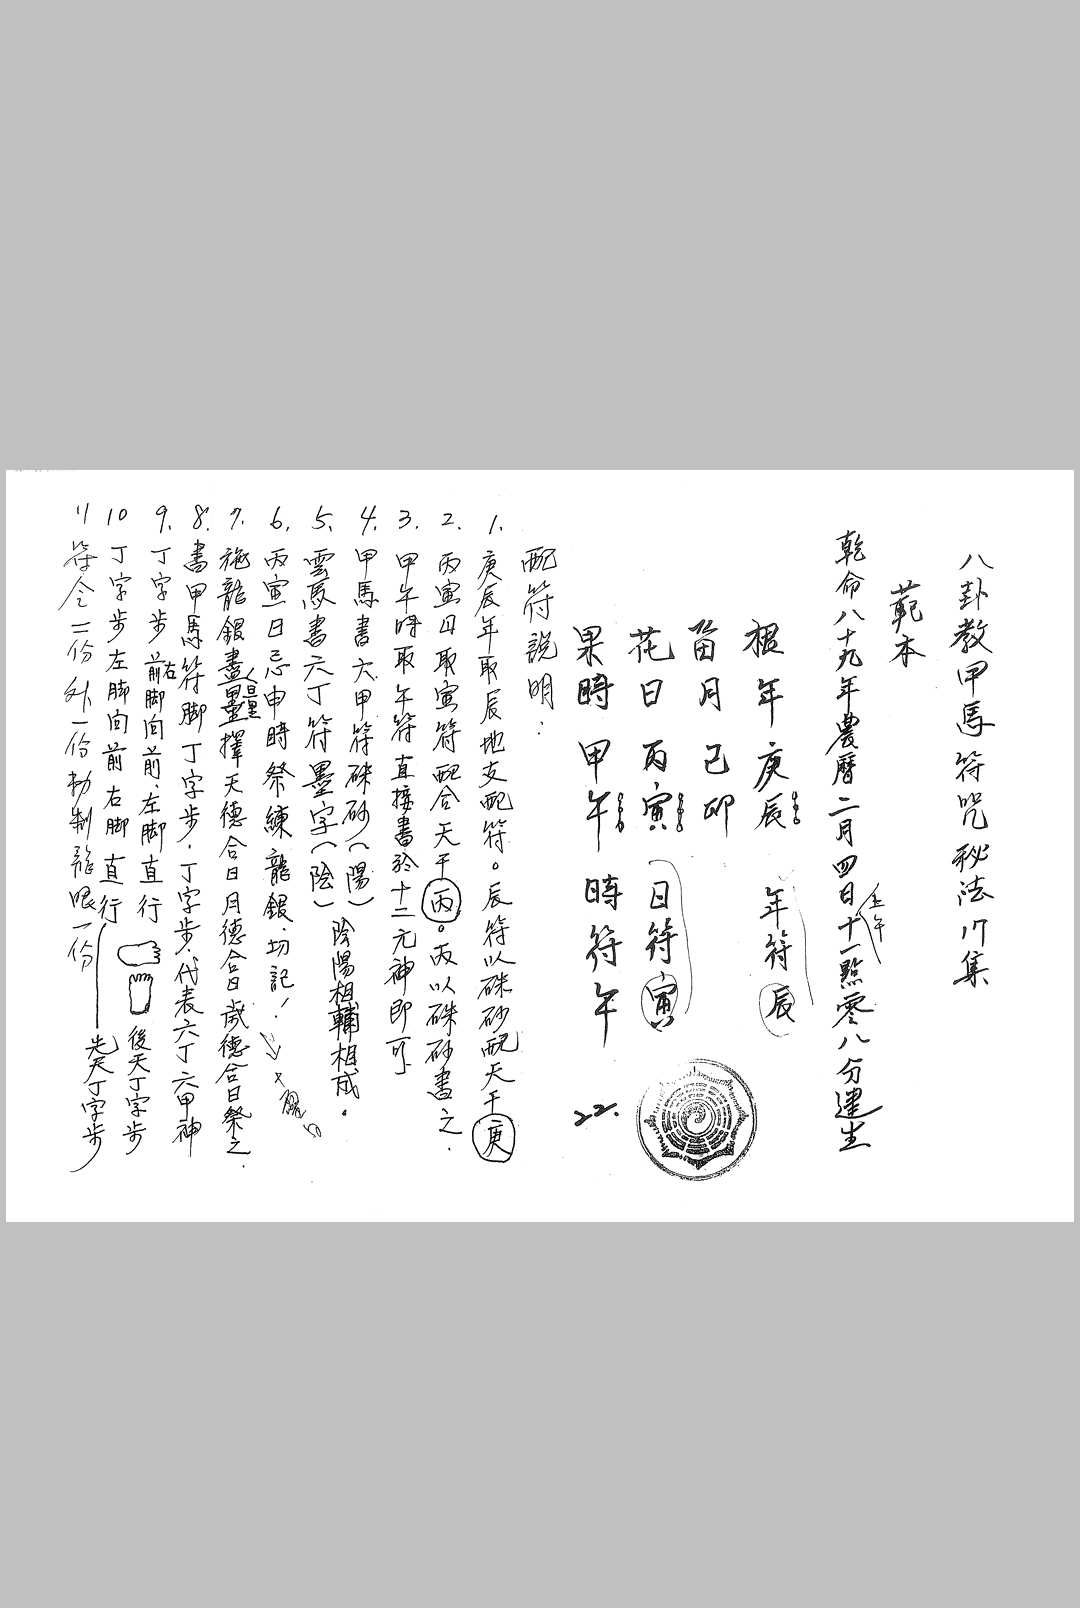 八卦教甲馬符咒秘法17集
範本
乾命八十九年農曆二月四日十一點零八分建生
壬午
根年庚辰 年符辰
苗月己卯
花日丙寅 日符寅
果時甲午 時符午
22.
配符說明：
1. 庚辰年取辰地支配符。辰符以硃砂配天干庚
2. 丙寅日取寅符配合天干丙。丙以硃砂書之.
3. 甲午時取午符直接書於十二元神即可
4. 甲馬書六甲符硃砂(陽)
5. 雲馬書六丁符墨字(陰)
陰陽相輔相成.
6. 丙寅日忌申時祭練龍銀.切記!
7. 施龍銀盡量擇天德合日月德合日歲德合日祭之.
8. 書甲馬符脚丁字步.丁字步.代表六丁六甲神
9. 丁字步前右脚向前、左脚直行
後天丁字步
10 丁字步左脚向前右脚直行
先天丁字步
11 符令二份外一份勅制龍眼一份